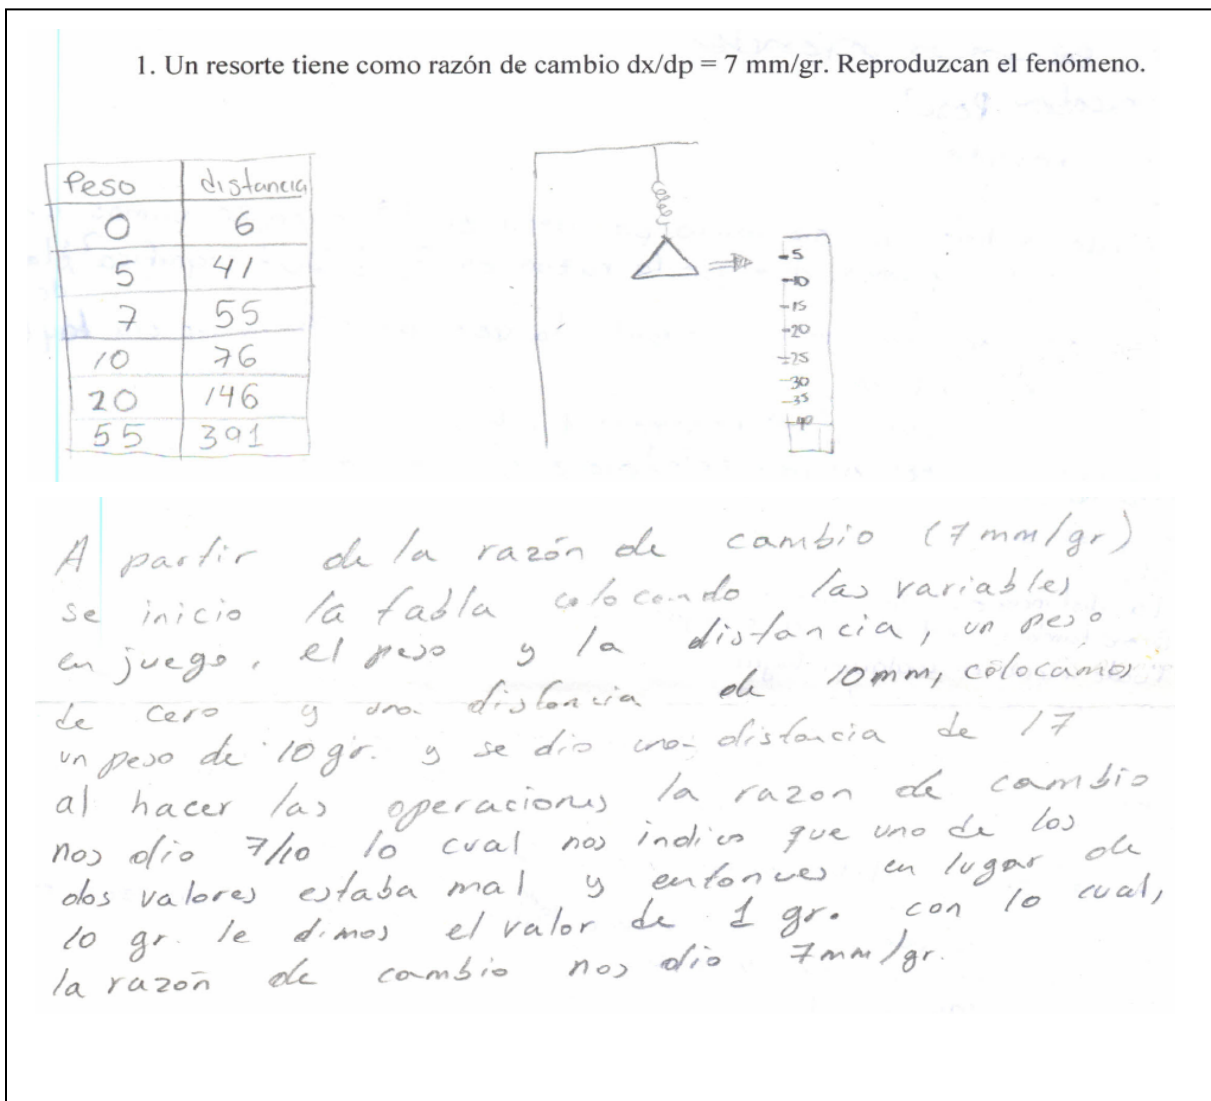 1. Un resorte tiene como razón de cambio dx/dp = 7 mm/gr. Reproduzcan el fenómeno.
Peso distancia
0 6
5 41
7 55
10 76
20 146
55 391
5
10
15
20
25
30
35
40
A partir de la razón de cambio (7mm/gr)
se inicio la tabla colocando las variables
en juego, el peso y la distancia, un peso
de cero y una distancia de 10mm, colocamos
un peso de 10 gr. y se dio una distancia de 17
al hacer las operaciones la razon de cambio
nos dio 7/10 lo cual nos indico que uno de los
dos valores estaba mal y entonces en lugar de
10 gr. le dimos el valor de 1 gr. con lo cual,
la razón de cambio nos dio 7mm/gr.